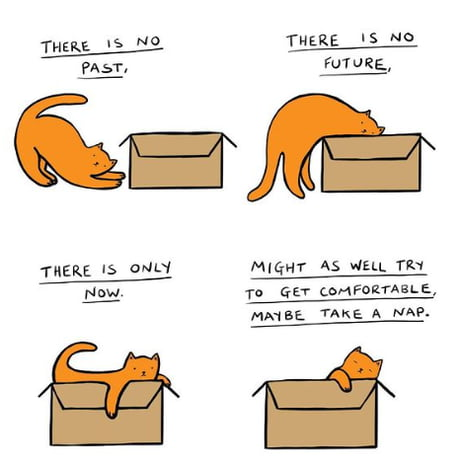 THERE IS NO
PAST,
THERE IS NO
FUTURE,
THERE IS ONLY
NOW.
MIGHT AS WELL TRY
TO GET COMFORTABLE,
MAYBE TAKE A NAP.